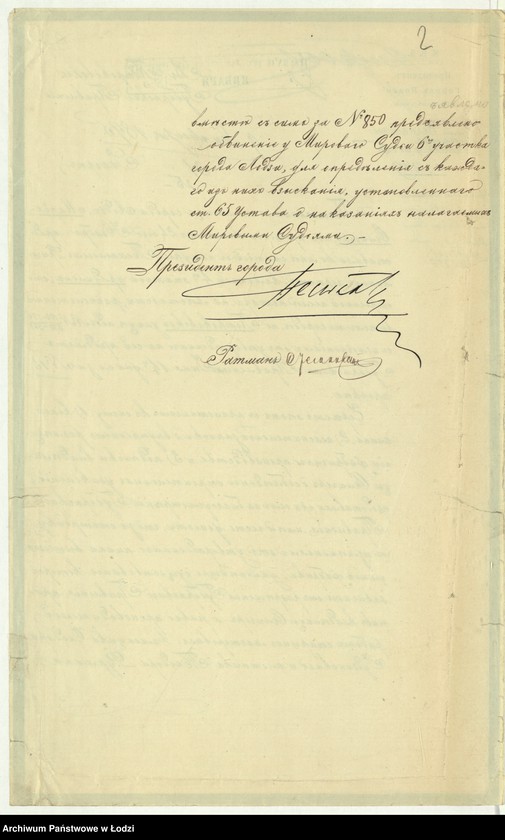 2
вместѣ съ симъ за № 850 предъявлено
обвиненіе у Мирового Судьи 6го участка
города Лодзи, для опредѣленія съ каждо-
го изъ нихъ взысканія, установленнаго
ст. 65 Устава о наказаніяхъ налагаемыхъ
Мировыми Судьями.—
Президентъ города
Ратманъ
Archiwum Państwowe w Łodzi